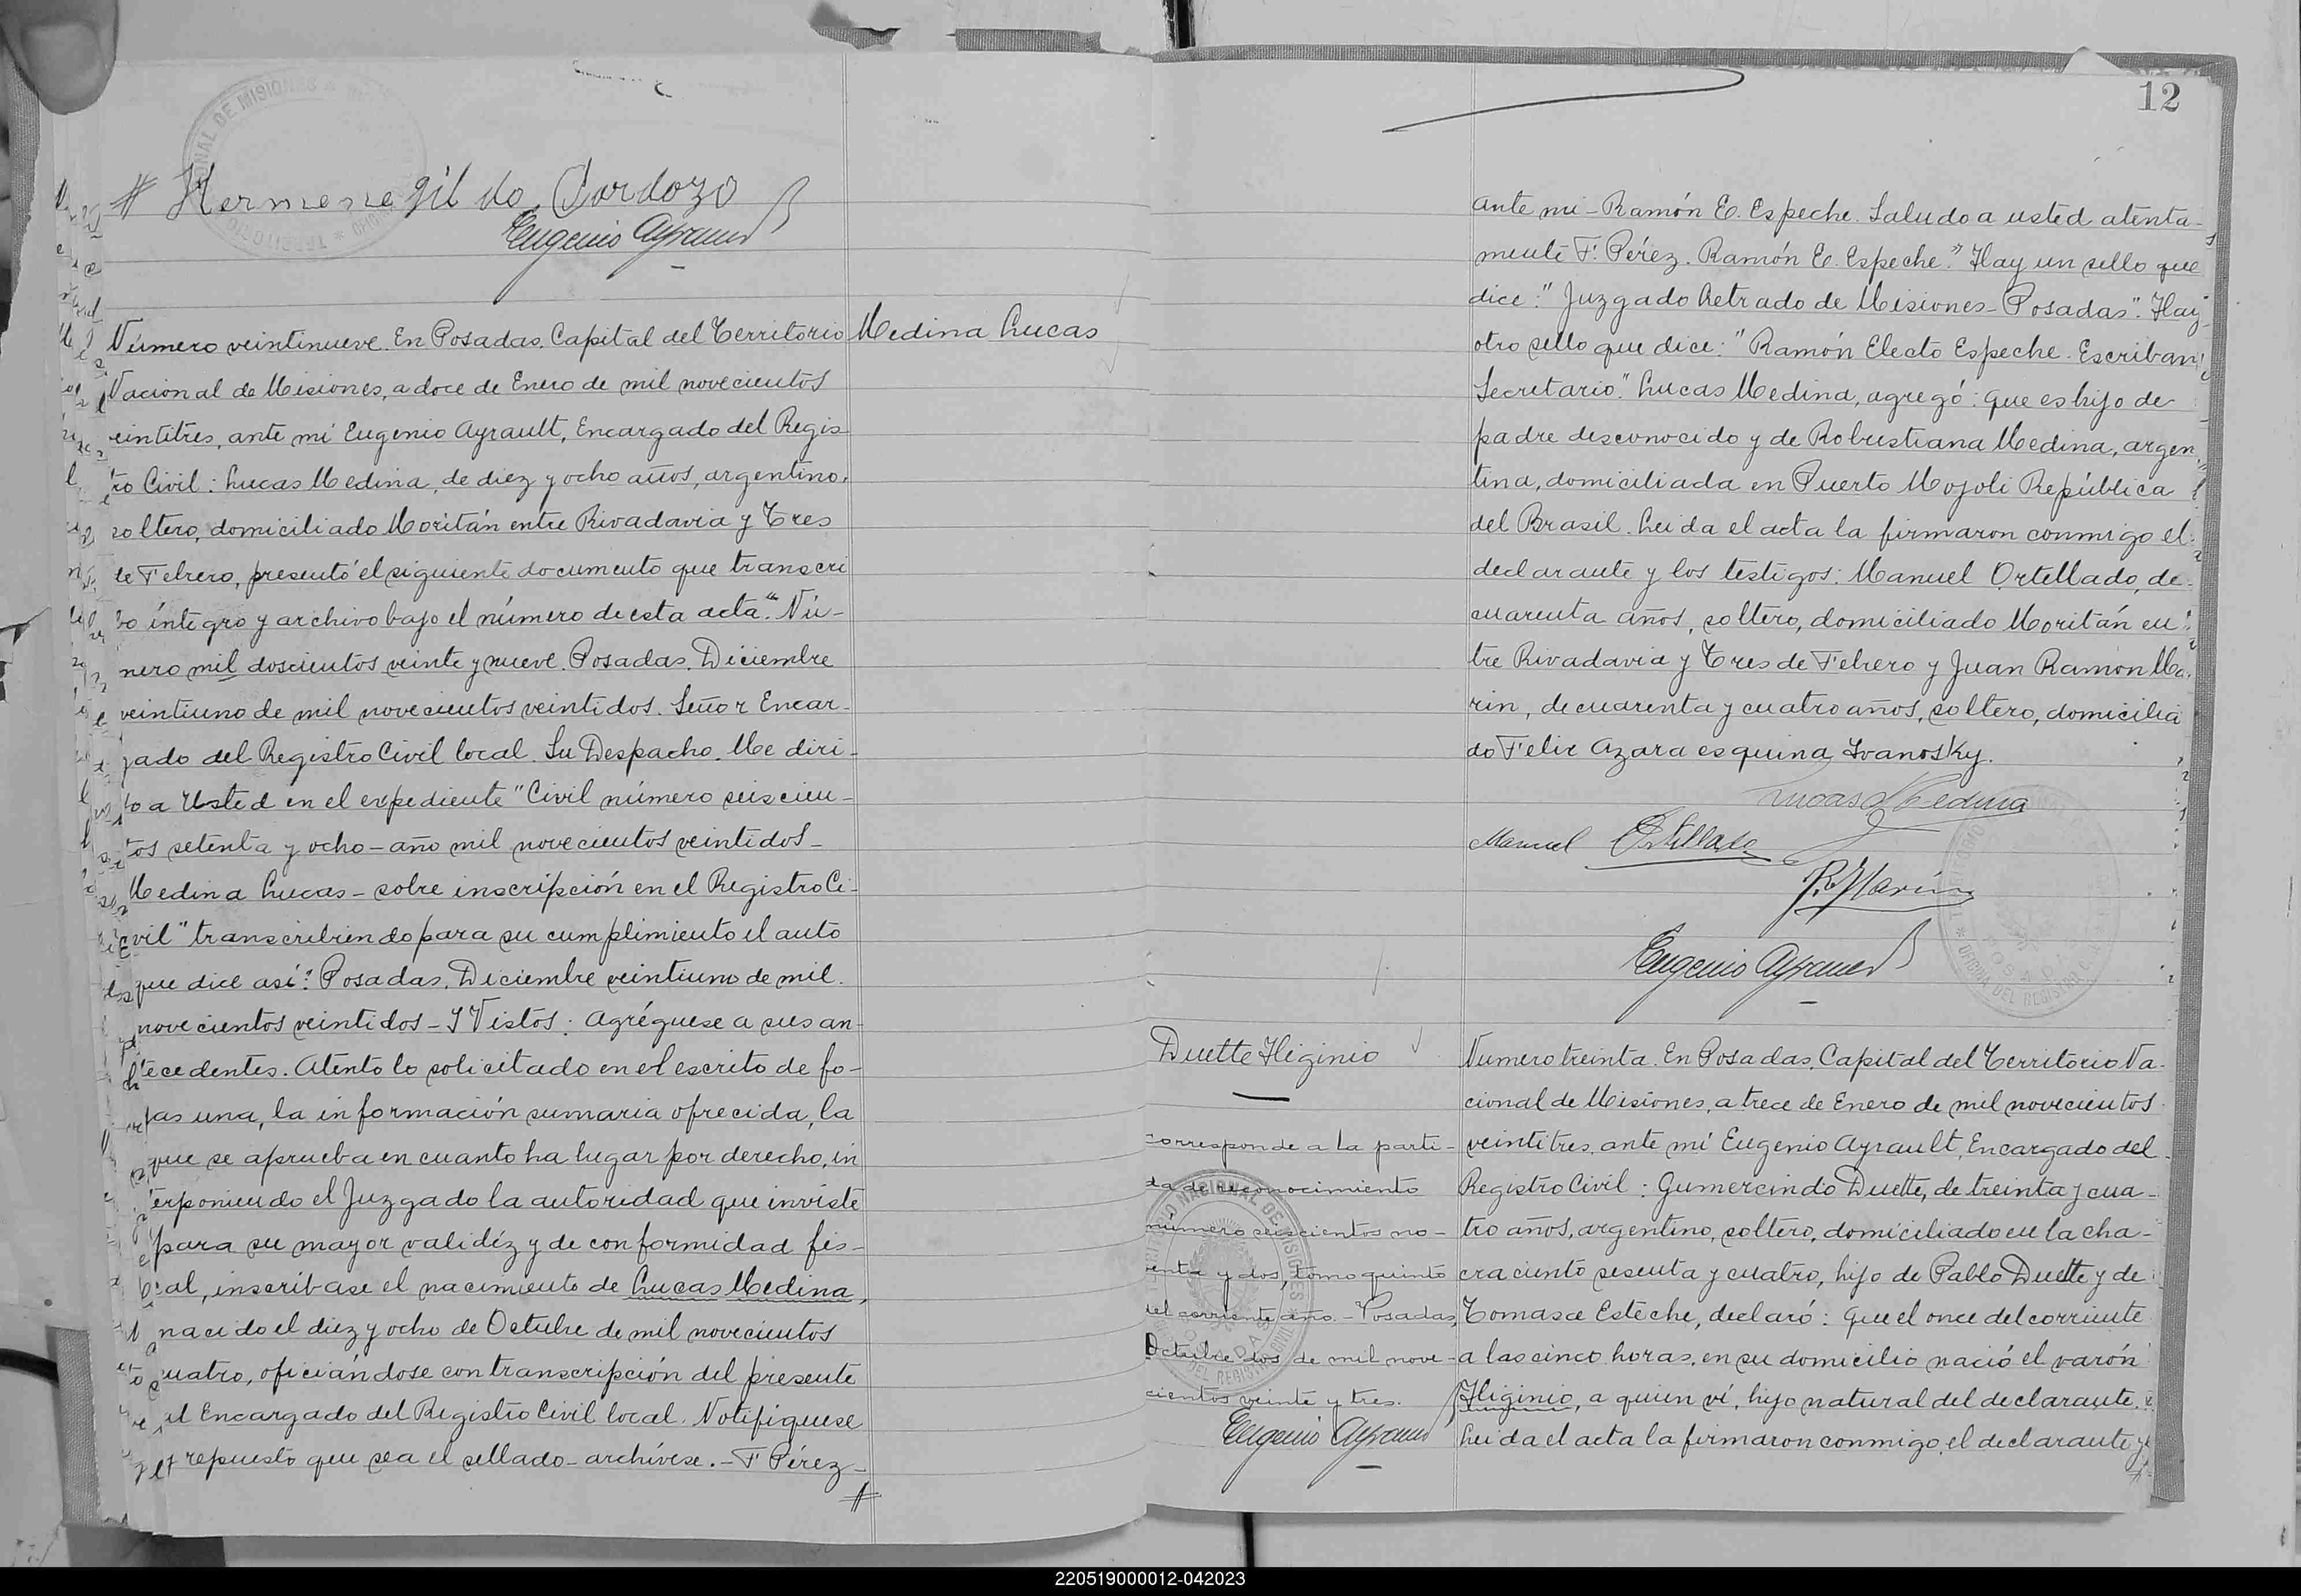 # Hermenegildo Cardozo
Eugenio Ayrault
Número veintinueve. En Posadas, Capital del Territorio
Medina Lucas
Nacional de Misiones, a doce de Enero de mil novecientos
veintitres, ante mí Eugenio Ayrault, Encargado del Regis
tro Civil: Lucas Medina, de diez y ocho años, argentino,
soltero, domiciliado Moritán entre Rivadavia y Tres
de Febrero, presentó el siguiente documento que transcri
bo íntegro y archivo bajo el número de esta acta: "Nú-
mero mil doscientos veinte y nueve. Posadas, Diciembre
veintiuno de mil novecientos veintidos. Señor Encar-
gado del Registro Civil local. Su Despacho. Me diri-
jo a Usted en el expediente "Civil número seiscien-
tos setenta y ocho - año mil novecientos veintidos -
Medina Lucas - sobre inscripción en el Registro Ci-
vil" transcribiendo para su cumplimiento el auto
que dice así: Posadas, Diciembre veintiuno de mil
novecientos veintidos - Y Vistos: Agréguese a sus an-
tecedentes. Atento lo solicitado en el escrito de fo-
jas una, la información sumaria ofrecida, la
que se aprueba en cuanto ha lugar por derecho, in
terponiendo el Juzgado la autoridad que inviste
para su mayor validéz y de conformidad fis-
cal, inscribase el nacimiento de Lucas Medina,
nacido el diez y ocho de Octubre de mil novecientos
cuatro, oficiándose con transcripción del presente
al Encargado del Registro Civil local. Notifíquese
y repuesto que sea el sellado - archívese. - F Pérez -
#
12
ante mi - Ramón E. Espeche. Saludo a usted atenta-
mente F. Pérez. Ramón E. Espeche." Hay un sello que
dice: "Juzgado Letrado de Misiones - Posadas". Hay
otro sello que dice: "Ramón Electo Espeche. Escribano
Secretario." Lucas Medina, agregó: que es hijo de
padre desconocido y de Robustiana Medina, argen
tina, domiciliada en Puerto Mojoli República
del Brasil. Leida el acta la firmaron conmigo el
declarante y los testigos: Manuel Ortellado, de
cuarenta años, soltero, domiciliado Moritán en
tre Rivadavia y Tres de Febrero y Juan Ramón Ma
rin, de cuarenta y cuatro años, soltero, domicilia
do Felix Azara esquina Ivanosky.
Lucas Medina
Manuel Ortellado
J. R. Marin
Eugenio Ayrault
Duette Higinio
Numero treinta. En Posadas, Capital del Territorio Na-
cional de Misiones, a trece de Enero de mil novecientos
veintitres, ante mí Eugenio Ayrault, Encargado del
Registro Civil: Gumercindo Duette, de treinta y cua-
tro años, argentino, soltero, domiciliado en la cha-
cra ciento sesenta y cuatro, hijo de Pablo Duette y de
Tomasa Esteche, declaró: Que el once del corriente
a las cinco horas, en su domicilio nació el varón
Higinio, a quien ví, hijo natural del declarante.
Leida el acta la firmaron conmigo, el declarante y
#
corresponde a la parti-
da de reconocimiento
número seiscientos no-
venta y dos, tomo quinto
del corriente año. - Posadas,
Octubre dos de mil nove-
cientos veinte y tres.
Eugenio Ayrault
220519000012-042023